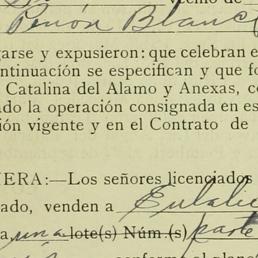 vecino de
Peñón Blanco
garse y expusieron: que celebran e
ontinuación se especifican y que fo
Catalina del Alamo y Anexas, co
ado la operación consignada en es
ión vigente y en el Contrato de
ERA:—Los señores licenciados
ado, venden a Eulali
a una lote(s) Núm.(s) parte
conforme al plano